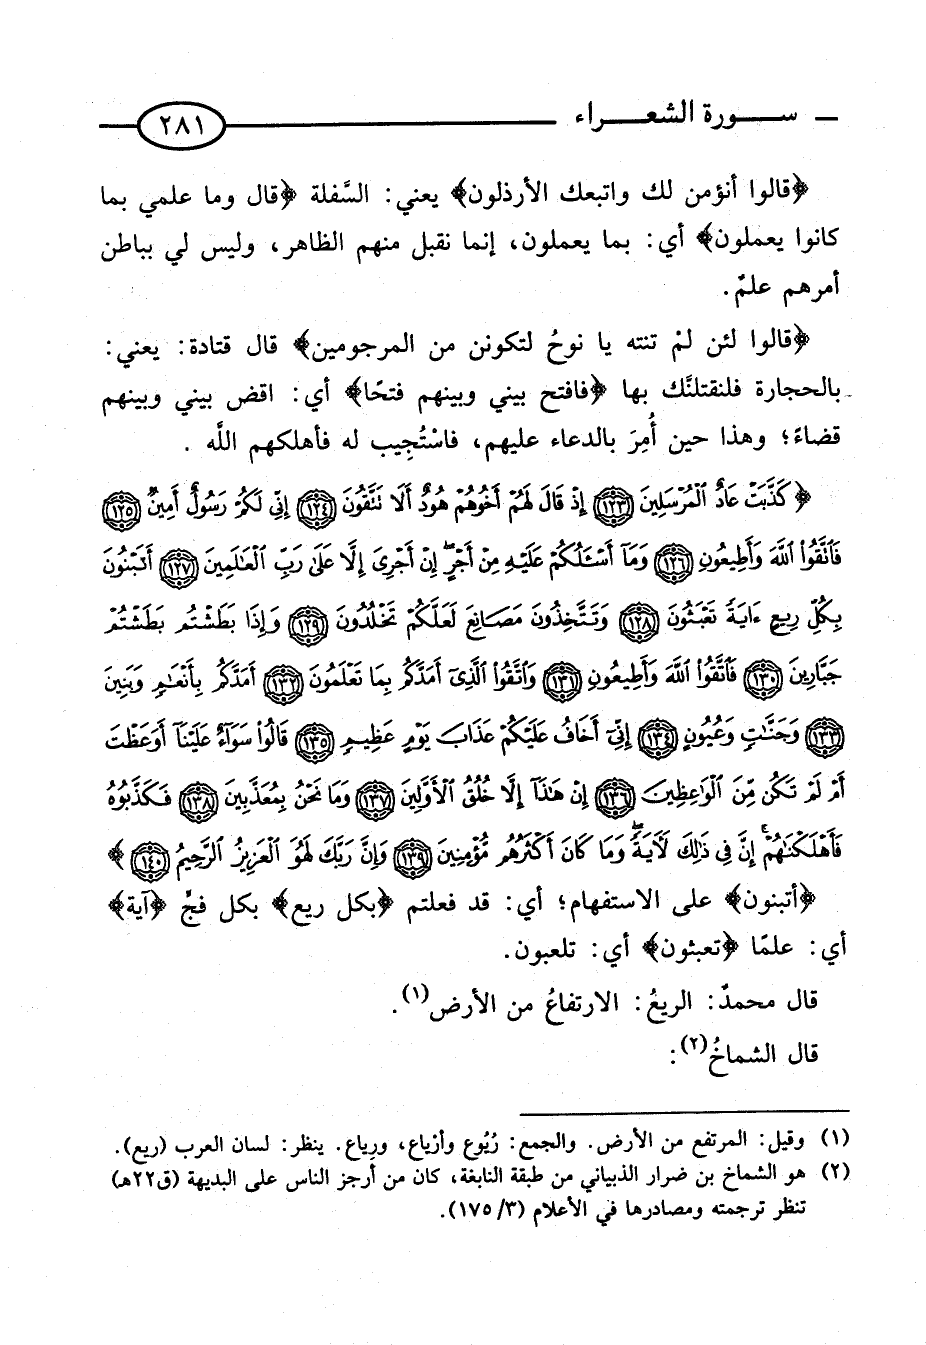 سورة الشعراء ٢٨١
﴿قالوا أنؤمن لك واتبعك الأرذلون﴾ يعني: السَّفلة ﴿قال وما علمي بما
كانوا يعملون﴾ أي: بما يعملون، إنما نقبل منهم الظاهر، وليس لي بباطن
أمرهم علمٌ.
﴿قالوا لئن لمْ تنته يا نوحُ لتكونن من المرجومين﴾ قال قتادة: يعني:
بالحجارة فلنقتلنَّك بها ﴿فافتح بيني وبينهم فتحًا﴾ أي: اقض بيني وبينهم
قضاءً؛ وهذا حين أُمِرَ بالدعاء عليهم، فاسْتُجِيب له فأهلكهم اللَّه .
﴿كَذَّبَتْ عَادٌ ٱلْمُرْسَلِينَ ١٢٣ إِذْ قَالَ لَهُمْ أَخُوهُمْ هُودٌ أَلَا تَتَّقُونَ ١٢٤ إِنِّي لَكُمْ رَسُولٌ أَمِينٌ ١٢٥
فَٱتَّقُوا۟ ٱللَّهَ وَأَطِيعُونِ ١٢٦ وَمَآ أَسْـَٔلُكُمْ عَلَيْهِ مِنْ أَجْرٍ ۖ إِنْ أَجْرِىَ إِلَّا عَلَىٰ رَبِّ ٱلْعَـٰلَمِينَ ١٢٧ أَتَبْنُونَ
بِكُلِّ رِيعٍ ءَايَةً تَعْبَثُونَ ١٢٨ وَتَتَّخِذُونَ مَصَانِعَ لَعَلَّكُمْ تَخْلُدُونَ ١٢٩ وَإِذَا بَطَشْتُم بَطَشْتُمْ
جَبَّارِينَ ١٣٠ فَٱتَّقُوا۟ ٱللَّهَ وَأَطِيعُونِ ١٣١ وَٱتَّقُوا۟ ٱلَّذِىٓ أَمَدَّكُم بِمَا تَعْلَمُونَ ١٣٢ أَمَدَّكُم بِأَنْعَـٰمٍ وَبَنِينَ
١٣٣ وَجَنَّـٰتٍ وَعُيُونٍ ١٣٤ إِنِّىٓ أَخَافُ عَلَيْكُمْ عَذَابَ يَوْمٍ عَظِيمٍ ١٣٥ قَالُوا۟ سَوَآءٌ عَلَيْنَآ أَوَعَظْتَ
أَمْ لَمْ تَكُن مِّنَ ٱلْوَٰعِظِينَ ١٣٦ إِنْ هَـٰذَآ إِلَّا خُلُقُ ٱلْأَوَّلِينَ ١٣٧ وَمَا نَحْنُ بِمُعَذَّبِينَ ١٣٨ فَكَذَّبُوهُ
فَأَهْلَكْنَـٰهُمْ ۗ إِنَّ فِى ذَٰلِكَ لَـَٔايَةً ۖ وَمَا كَانَ أَكْثَرُهُم مُّؤْمِنِينَ ١٣٩ وَإِنَّ رَبَّكَ لَهُوَ ٱلْعَزِيزُ ٱلرَّحِيمُ ١٤٠﴾
﴿أتبنون﴾ على الاستفهام؛ أي: قد فعلتم ﴿بكل ريع﴾ بكل فجٍّ ﴿آية﴾
أي: علمًا ﴿تعبثون﴾ أي: تلعبون.
قال محمدٌ: الريعُ: الارتفاعُ من الأرض(١).
قال الشماخُ(٢):
(١) وقيل: المرتفع من الأرض. والجمع: رُيُوع وأرْياع، ورِياع. ينظر: لسان العرب (ريع).
(٢) هو الشماخ بن ضرار الذبياني من طبقة النابغة، كان من أرجز الناس على البديهة (ق٢٢هـ)
تنظر ترجمته ومصادرها في الأعلام (٣/ ١٧٥).